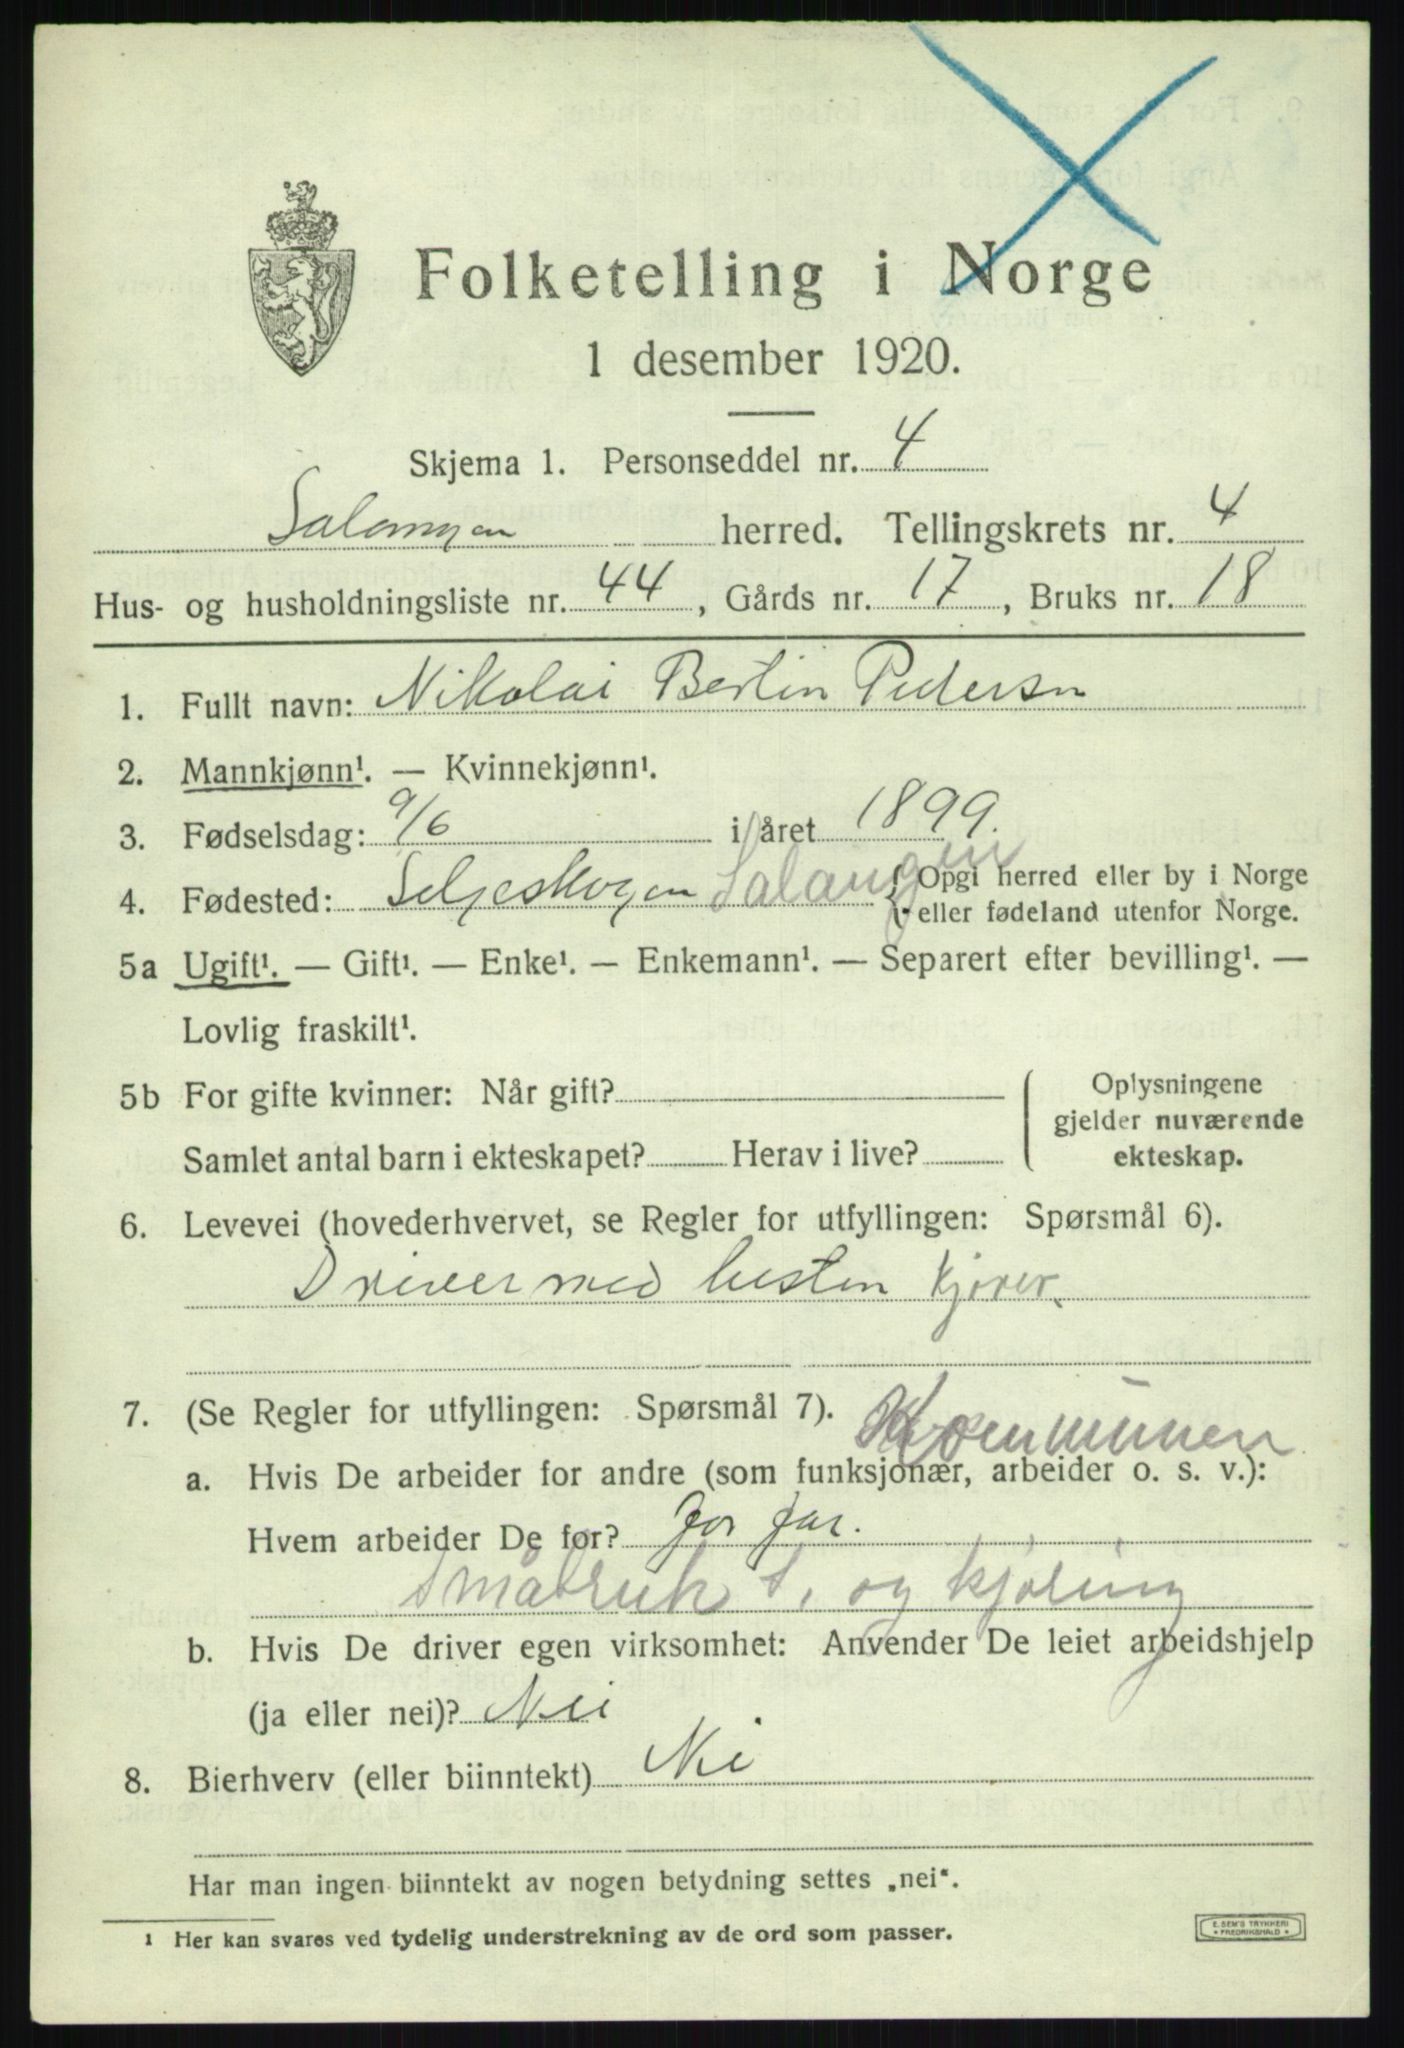 Folketelling i Norge
1 desember 1920.
Skjema 1. Personseddel nr. 4
Salangen herred. Tellingskrets nr. 4
Hus- og husholdningsliste nr. 44, Gårds nr. 17, Bruks nr. 18
1. Fullt navn: Nikolai Bertin Pedersen
2. Mannkjønn¹. — Kvinnekjønn¹.
3. Fødselsdag: 9/6 i året 1899.
4. Fødested: Seljeskogen Salangen { Opgi herred eller by i Norge
eller fødeland utenfor Norge.
5a Ugift¹. — Gift¹. — Enke¹. — Enkemann¹. — Separert efter bevilling¹. —
Lovlig fraskilt¹.
5b For gifte kvinner: Når gift?
Samlet antal barn i ekteskapet? Herav i live?
Oplysningene
gjelder nuværende
ekteskap.
6. Levevei (hovederhvervet, se Regler for utfyllingen: Spørsmål 6).
Driver med hesten kjører.
7. (Se Regler for utfyllingen: Spørsmål 7). Kommunen
a. Hvis De arbeider for andre (som funksjonær, arbeider o. s. v.):
Hvem arbeider De for? for far.
Småbruk s, og kjøring
b. Hvis De driver egen virksomhet: Anvender De leiet arbeidshjelp
(ja eller nei)? Nei
8. Bierhverv (eller biinntekt) Nei
Har man ingen biinntekt av nogen betydning settes „nei“.
¹ Her kan svares ved tydelig understrekning av de ord som passer.
E. SEM'S TRYKKERI
* FREDRIKSHALD *